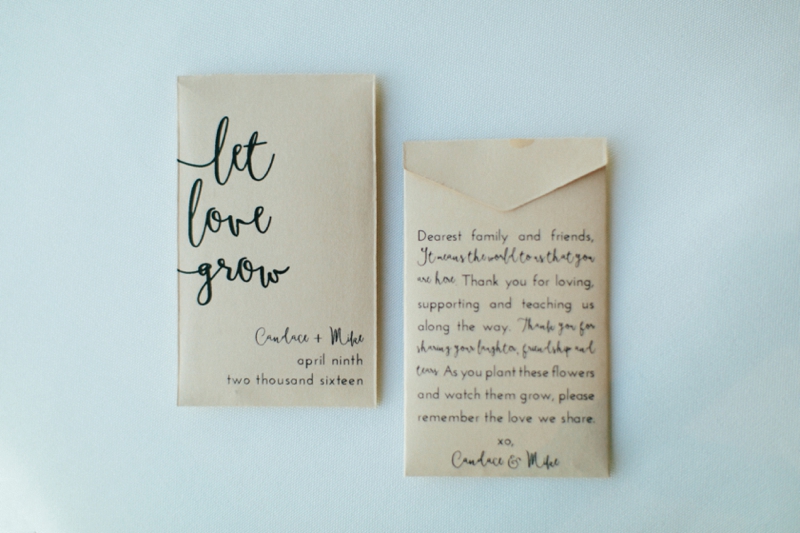 let
love
grow
Candace + Mike
april ninth
two thousand sixteen
Dearest family and friends,
It means the world to us that you
are here. Thank you for loving,
supporting and teaching us
along the way. Thank you for
sharing your laughter, friendship and
tears. As you plant these flowers
and watch them grow, please
remember the love we share.
xo,
Candace & Mike